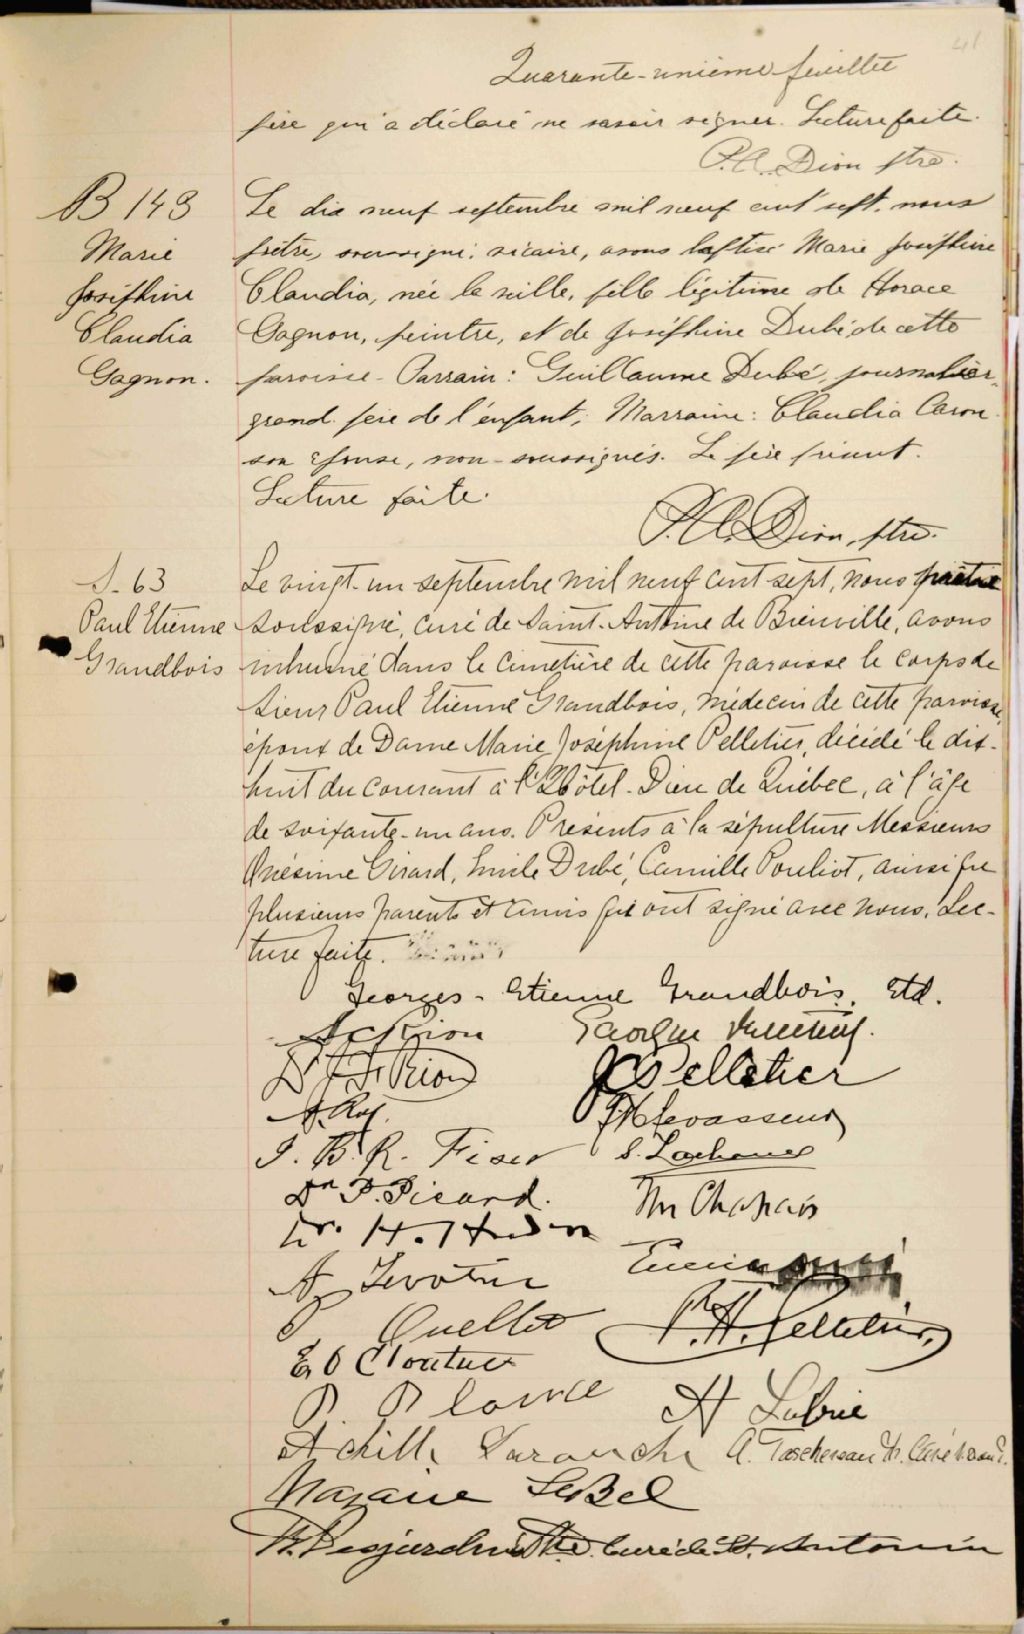 41
Quarante-unième feuillet
père qui a déclaré ne savoir signer. Lecture faite.
P.A. Dion ptre.
B 149
Marie
Joséphine
Claudia
Gagnon.
Le dix neuf septembre mil neuf cent sept, nous
prêtre, soussigné, vicaire, avons baptisé Marie Joséphine
Claudia, née la veille, fille légitime de Horace
Gagnon, peintre, et de Joséphine Dubé de cette
paroisse - Parrain: Guillaume Dubé, journalier,
grand père de l'enfant; Marraine: Claudia Caron
son épouse, non-soussignés. Le père présent.
Lecture faite.
P.A. Dion, ptre.
S-63
Paul Etienne
Grandbois
Le vingt-un septembre mil neuf cent sept, nous prêtre
soussigné, curé de Saint-Antoine de Bienville, avons
inhumé dans le cimetière de cette paroisse le corps de
Sieur Paul Etienne Grandbois, médecin de cette paroisse,
époux de Dame Marie Joséphine Pelletier, décédé le dix-
huit du courant à l'Hôtel-Dieu de Québec, à l'âge
de soixante-un ans. Présents à la sépulture Messieurs
Onésime Girard, Emile Dubé, Camille Pouliot, ainsi que
plusieurs parents et amis qui ont signé avec nous. Lec-
ture faite.
Georges-Etienne Grandbois. Etd.
Riou
Dr J. F. Riou
J C Pelletier
A. Roy.
Levasseur
J. B. R. Fiset
S. Lachance
Dr P. Picard.
Thr Chapais
Dr. H. Hudon
P Ouellet
P. H. Pelletier,
E O Cloutier
A Labrie
Achille
A. Taschereau
Nazaire LeBel
Desjardins Ptre. Curé de St. Antonin